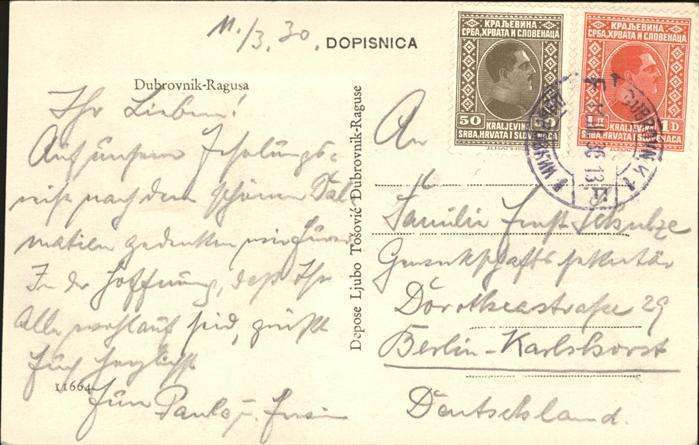 11./3.30.
DOPISNICA
Dubrovnik-Ragusa
КРАЉЕВИНА
СРБА, ХРВАТА И СЛОВЕНАЦА
50
KRALJEVINA
SRBA, HRVATA I SLOVENACA
КРАЉЕВИНА
СРБА, ХРВАТА И СЛОВЕНАЦА
1 Д 1 D
KRALJEVINA
SRBA, HRVATA I SLOVENACA
Ihr Lieben!
Auf unserer Erholungs-
reise nach dem schönen Dal-
matien gedenken wir Eurer
In der Hoffnung, daß Ihr
Alle wohlauf seid, grüßt
Euch herzlichst
Paul u. Erna
11664
Depose Ljubo Tošović Dubrovnik-Raguse
An
Familie Ernst Schulze
Gewerkschaftssekretär
Dorotheastraße 29
Berlin-Karlshorst
Deutschland.